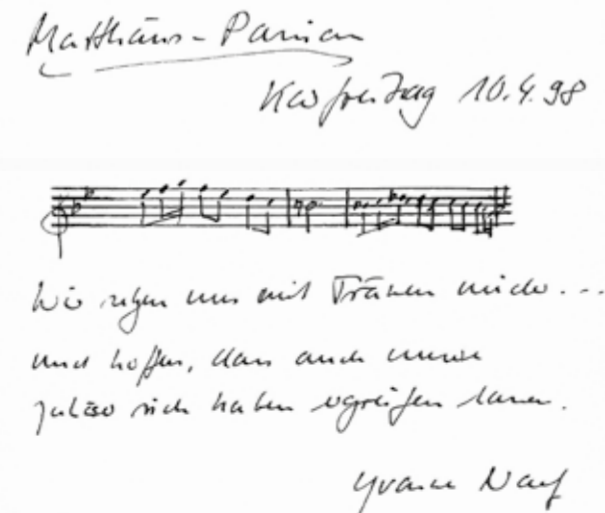 Matthäus-Passion
Karfreitag 10.4.98
Wir setzen uns mit Tränen nieder...
und hoffen, dass auch unsere
Zuhörer sich haben ergreifen lassen.
Yvonne Naef